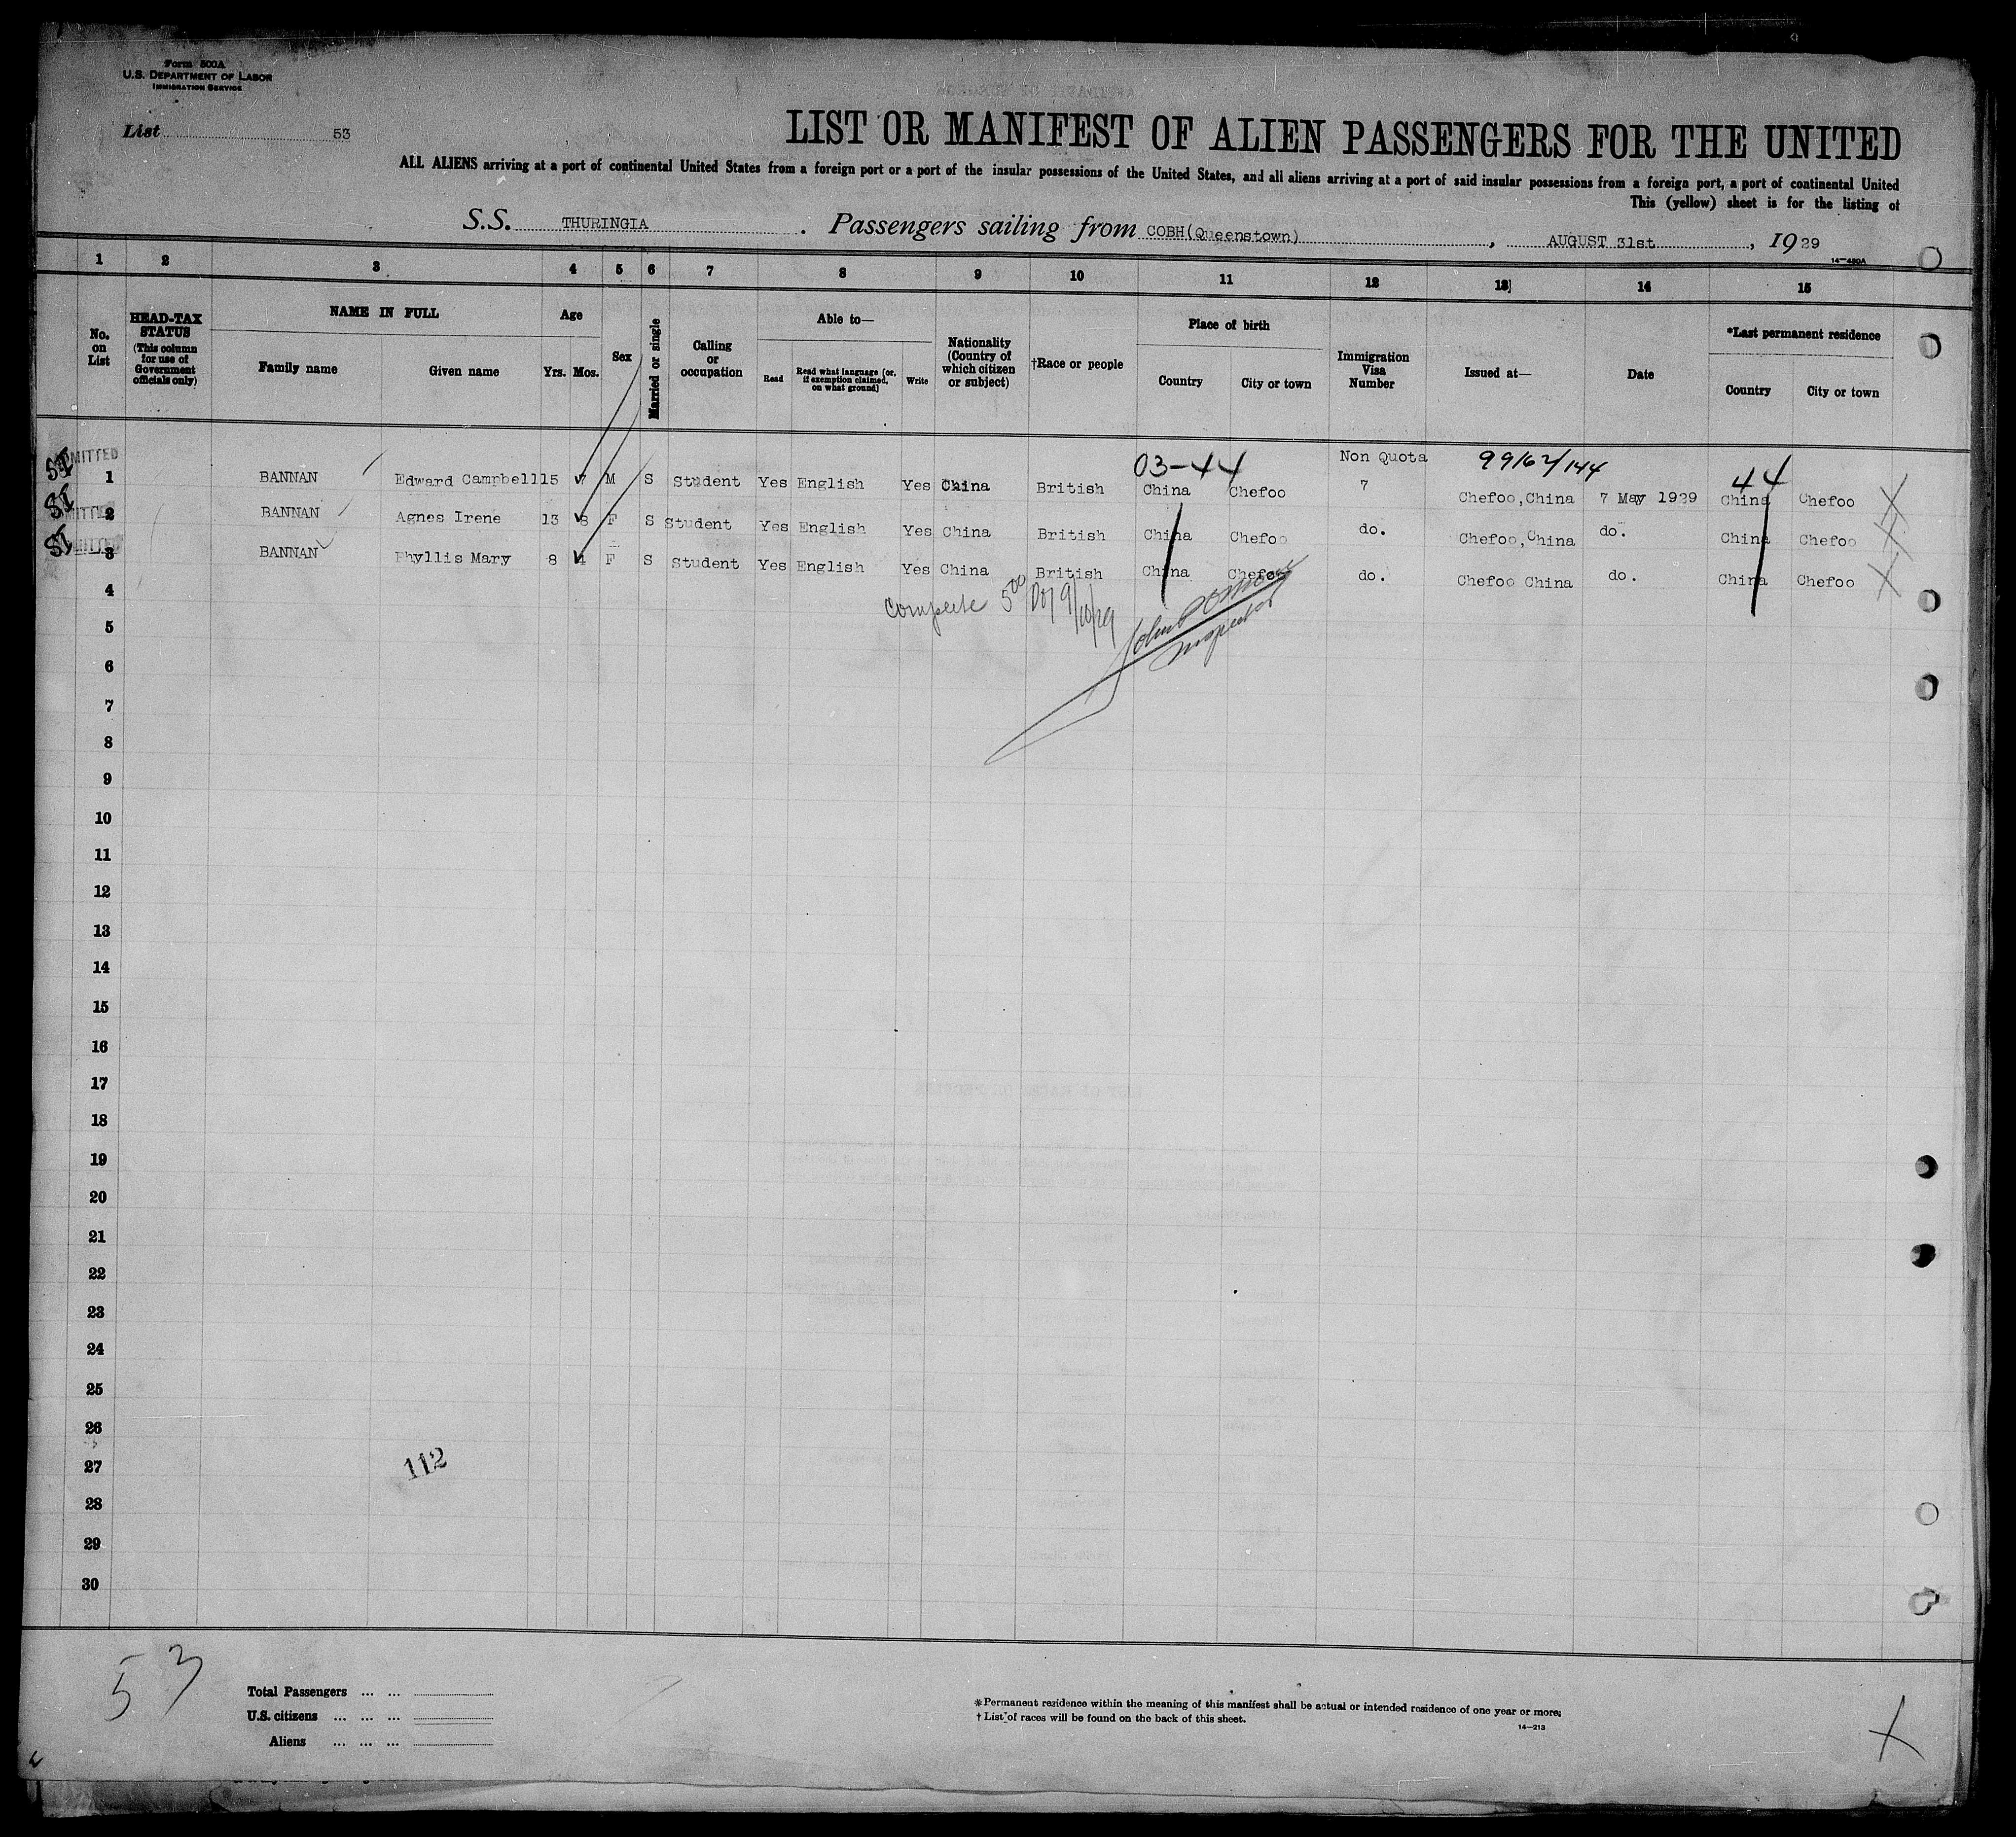 Form 500A
U.S. DEPARTMENT OF LABOR
IMMIGRATION SERVICE
List 53
LIST OR MANIFEST OF ALIEN PASSENGERS FOR THE UNITED
ALL ALIENS arriving at a port of continental United States from a foreign port or a port of the insular possessions of the United States, and all aliens arriving at a port of said insular possessions from a foreign port, a port of continental United
This (yellow) sheet is for the listing of
S.S. THURINGIA. Passengers sailing from COBH(Queenstown), AUGUST 31st, 1929
14-480A
1 2 3 4 5 6 7 8 9 10 11 12 13 14 15
No. on List
HEAD-TAX STATUS (This column for use of Government officials only)
NAME IN FULL
Family name
Given name
Age
Yrs. Mos.
Sex
Married or single
Calling or occupation
Able to—
Read
Read what language [or, if exemption claimed, on what ground]
Write
Nationality (Country of which citizen or subject)
†Race or people
Place of birth
Country
City or town
Immigration Visa Number
Issued at—
Date
*Last permanent residence
Country
City or town
SI ADMITTED
03-44 Non Quota 99162/144 44
1 BANNAN Edward Campbell 15 7 M S Student Yes English Yes China British China Chefoo 7 Chefoo,China 7 May 1929 China Chefoo X
SI
2 BANNAN Agnes Irene 13 8 F S Student Yes English Yes China British China Chefoo do. Chefoo,China do. China Chefoo X
SI
3 BANNAN Phyllis Mary 8 4 F S Student Yes English Yes China British China Chefoo do. Chefoo China do. China Chefoo X
4
complete 5 00 9/10/29
John
Inspector
5
6
7
8
9
10
11
12
13
14
15
16
17
18
19
20
21
22
23
24
25
26
27
112
28
29
30
53
Total Passengers ... ...
U.S. citizens ... ... ...
Aliens ... ... ...
*Permanent residence within the meaning of this manifest shall be actual or intended residence of one year or more.
†List of races will be found on the back of this sheet.
14-213
X